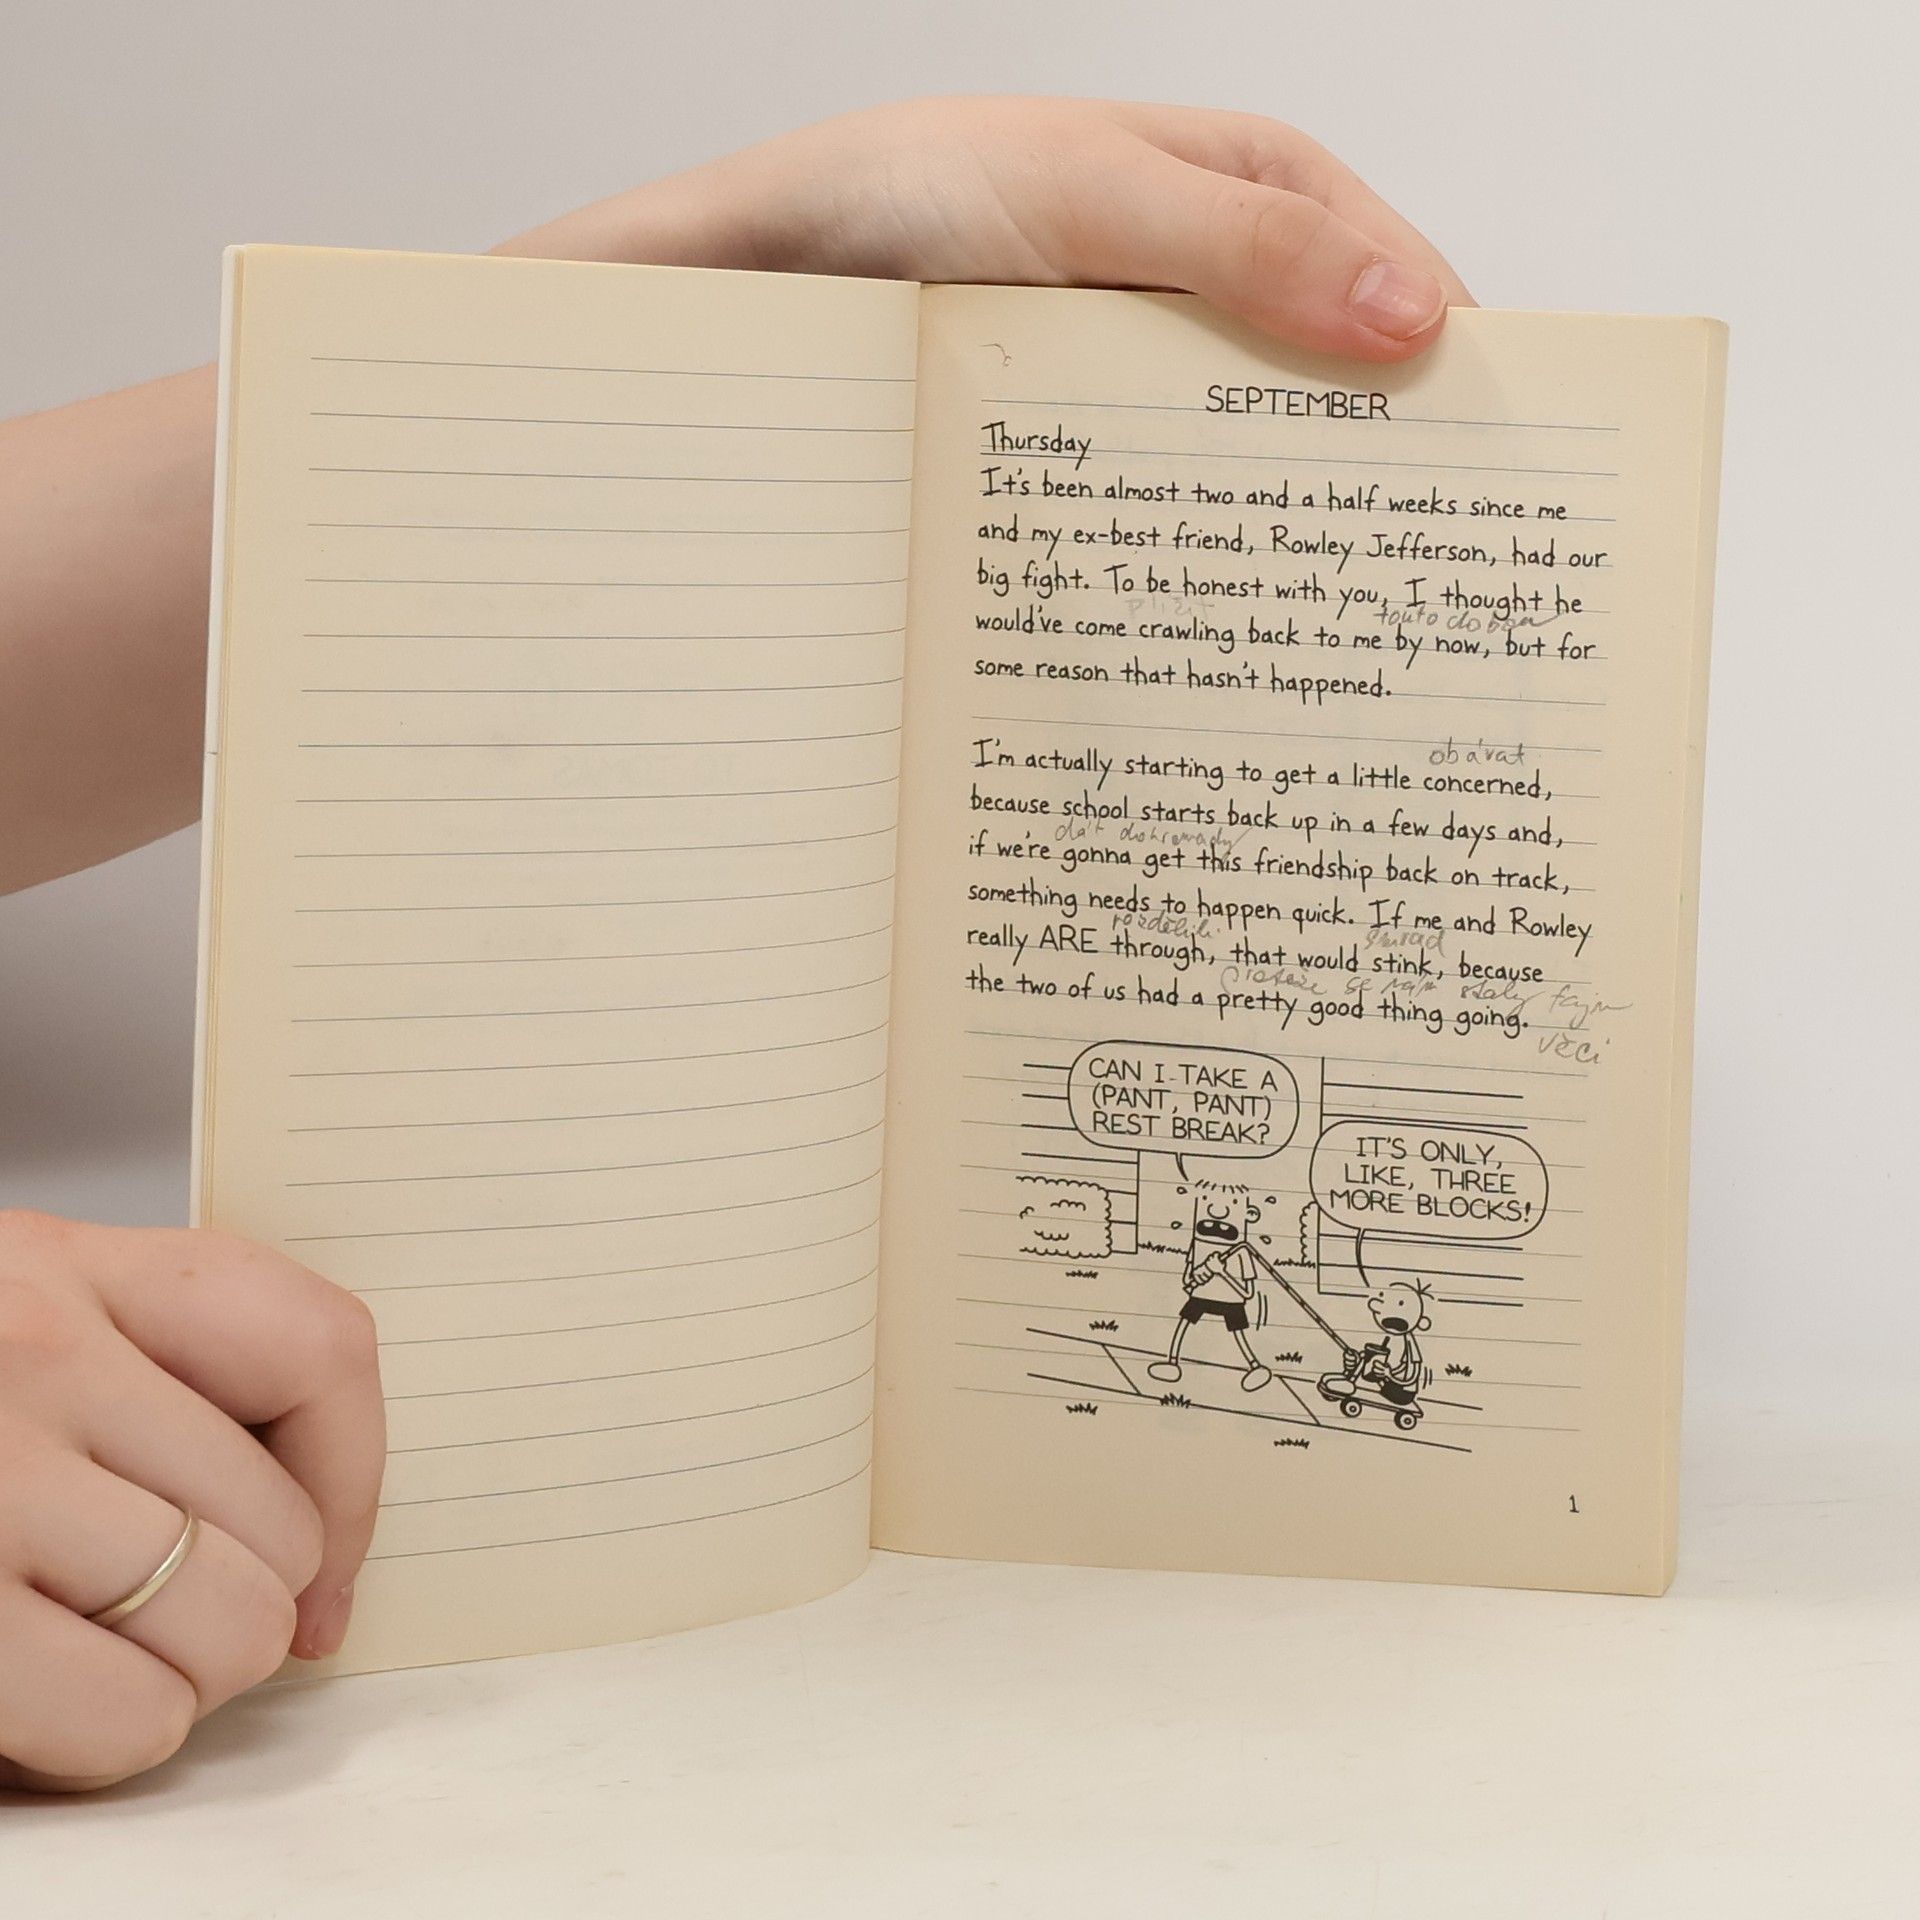 SEPTEMBER
Thursday
It's been almost two and a half weeks since me
and my ex-best friend, Rowley Jefferson, had our
big fight. To be honest with you, I thought he
plížit touto dobou
would've come crawling back to me by now, but for
some reason that hasn't happened.
obávat
I'm actually starting to get a little concerned,
because school starts back up in a few days and,
dát dohromady
if we're gonna get this friendship back on track,
something needs to happen quick. If me and Rowley
rozdělili smrad
really ARE through, that would stink, because
se staly fajn
the two of us had a pretty good thing going.
věci
CAN I TAKE A
(PANT, PANT)
REST BREAK?
IT'S ONLY,
LIKE, THREE
MORE BLOCKS!
1